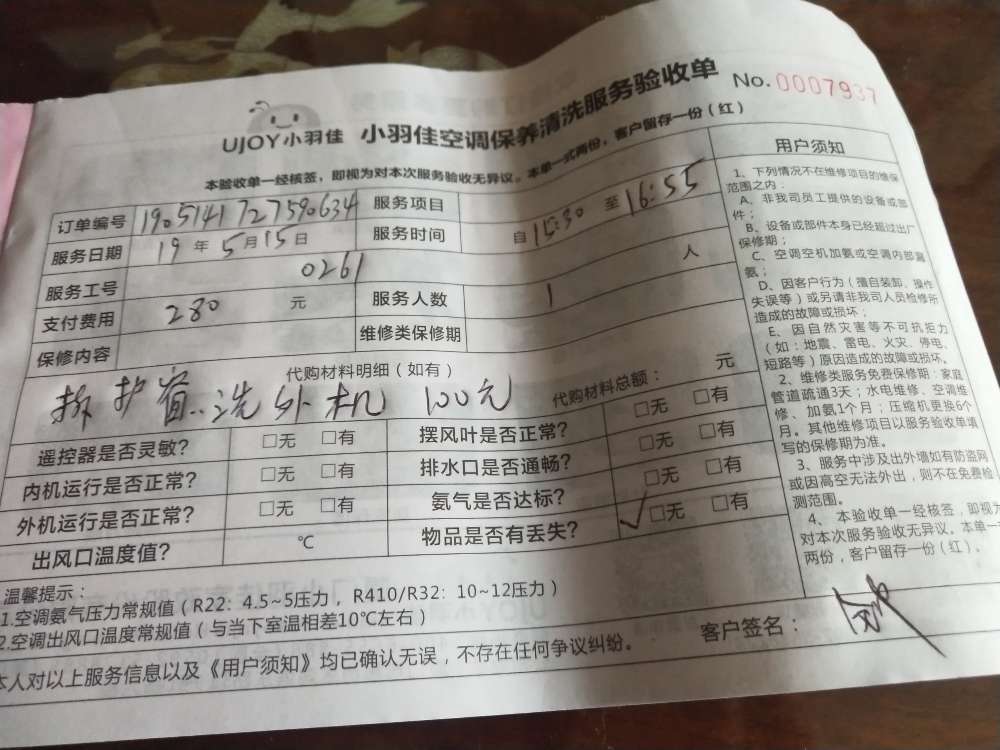 No.0007937
UJOY小羽佳 小羽佳空调保养清洗服务验收单
本验收单一经核签，即视为对本次服务验收无异议。本单一式两份，客户留存一份（红）
订单编号 1905141727590634 服务项目
服务日期 19年5月15日 服务时间 自15:30至16:55
服务工号 0261
支付费用 280 元 服务人数 1 人
保修内容 维修类保修期
代购材料明细（如有） 代购材料总额： 元
拆护窗..洗外机 100元
遥控器是否灵敏? □无 □有 摆风叶是否正常? □无 □有
内机运行是否正常? □无 □有 排水口是否通畅? □无 □有
外机运行是否正常? □无 □有 氨气是否达标? □无 □有
出风口温度值? ℃ 物品是否有丢失? ✓□无 □有
温馨提示：
1.空调氨气压力常规值（R22：4.5~5压力，R410/R32：10~12压力）
2.空调出风口温度常规值（与当下室温相差10℃左右）
本人对以上服务信息以及《用户须知》均已确认无误，不存在任何争议纠纷。
客户签名：
用户须知
1、下列情况不在维修项目的维保
范围之内：
A、非我司员工提供的设备或部
件；
B、设备或部件本身已经超过出厂
保修期；
C、空调空机加氨或空调内部漏
氨；
D、因客户行为（擅自装卸、操作
失误等）或另请非我司人员检修所
造成的故障或损坏；
E、因自然灾害等不可抗拒力
（如：地震、雷电、火灾、停电、
短路等）原因造成的故障或损坏。
2、维修类服务免费保修期：家庭
管道疏通3天；水电维修、空调维
修、加氨1个月；压缩机更换6个
月。其他维修项目以服务验收单填
写的保修期为准。
3、服务中涉及出外墙如有防盗网
或因高空无法外出，则不在免费检
测范围。
4、本验收单一经核签，即视为
对本次服务验收无异议。本单一
两份，客户留存一份（红）、